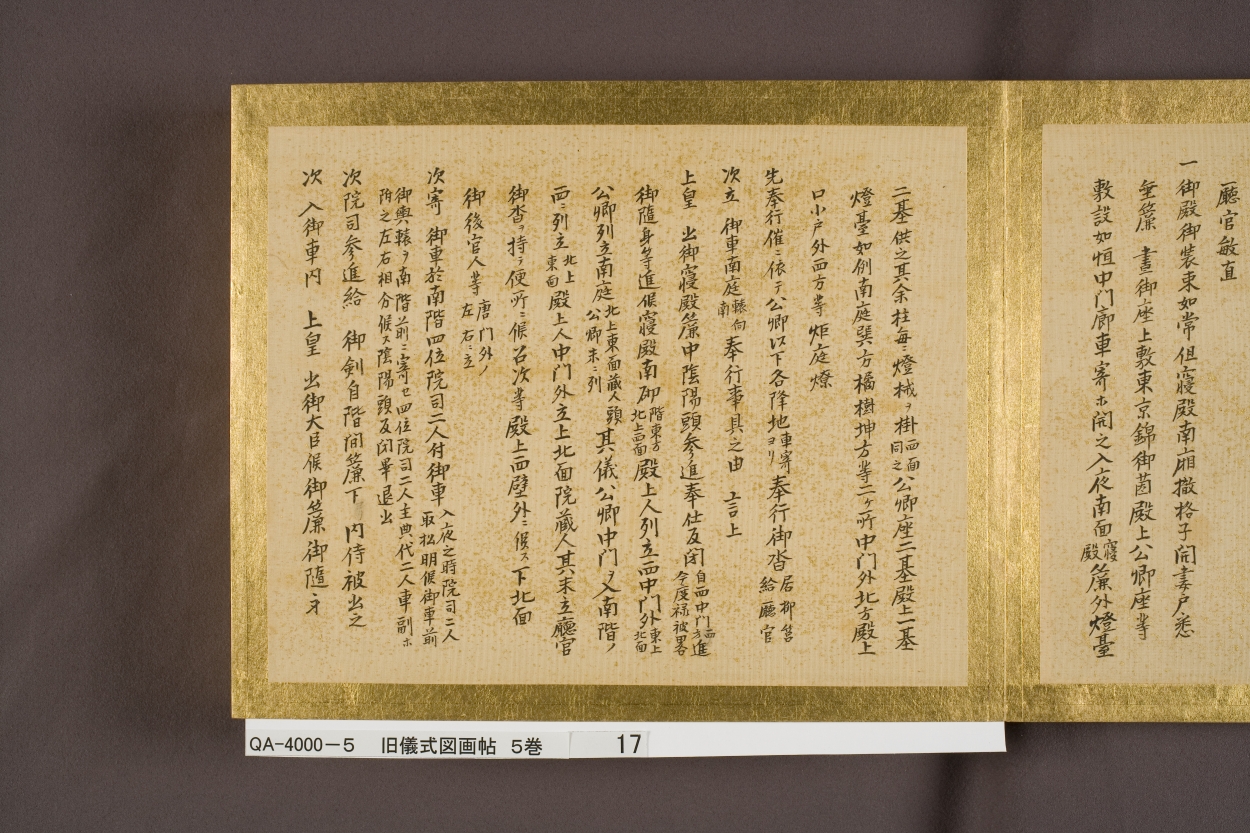 一廳官敏直
一御殿御装束如常但寝殿南廂撤格子開妻戸悉
垂簾　晝御座上敷東京錦御茵殿上公卿座等
敷設如恒中門廊車寄ホ開之入夜南面寝殿簾外燈臺
二基供之其余柱毎ニ燈械ヲ掛四面同之公卿座二基殿上一基
燈臺如例南庭巽方橘樹坤方等二ヶ所中門外北方殿上
口小戸外西方等炬庭燎
先奉行催ニ依テ公卿以下各降地車寄ヨリ奉行御沓居柳筥給廳官
次立　御車南庭轅向南奉行事具之由　言上
上皇　出御寝殿簾中陰陽頭参進奉仕反閇自西中門西方進今度禄被畧
御隨身等進候寝殿南砌階東方北上西面殿上人列立西中門外東上北面
公卿列立南庭北上東面蔵人頭公卿末ニ列其儀公卿中門ヲ入南階ノ
西ニ列立北上東面殿上人中門外立上北面院蔵人其末立廳官
御沓ヲ持テ便所ニ候召次等殿上西壁外ニ候ス下北面
御後官人等唐門外ノ左右ニ立
次寄　御車於南階四位院司二人付御車入夜之時院司二人取松明候御車前
御輿轅ヲ南階前ニ寄セ四位院司二人主典代二人車副ホ
附之左右相分候ス陰陽頭反閇畢退出
次院司参進給　御剣自階間簾下　内侍被出之
次　入御車内　上皇　出御大臣候御簾御隨身
QA-4000-5　旧儀式図画帖　5巻　17